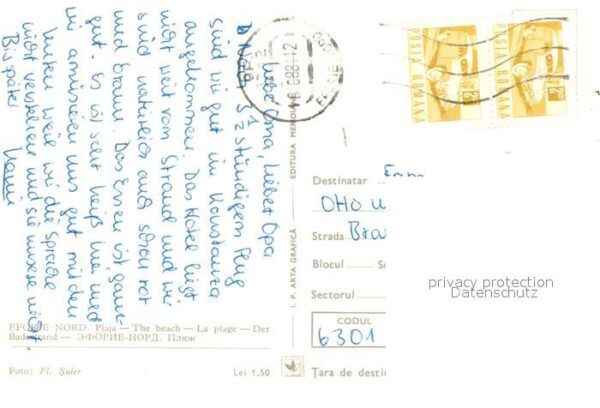 Liebe Oma, lieber Opa
Nach 3 1/2 stündigem Flug
sind wir gut in Konstanza
angekommen. Das Hotel liegt
nicht weit vom Strand und wir
sind natürlich auch schon rot
und braun. Das Essen ist ganz
gut. Es ist sehr heiß hier und
wir amüsieren uns gut mit den
Leuten weil wir die Sprache
nicht verstehen und sie unsere nicht.
Bis später
EFORIE NORD. Plaja — The beach — La plage — Der
Badestrand — ЭФОРИЕ-НОРД. Пляж
Foto: Fl. Șuler
Lei 1,50
I. P. ARTA GRAFICĂ
EDITURA MERIDIANE
POSTA ROMANA
POSTA ROMANA
Destinatar
Otto u
Strada Bra
Blocul Sc
Sectorul
CODUL
6301
Țara de destin
privacy protection
Datenschutz